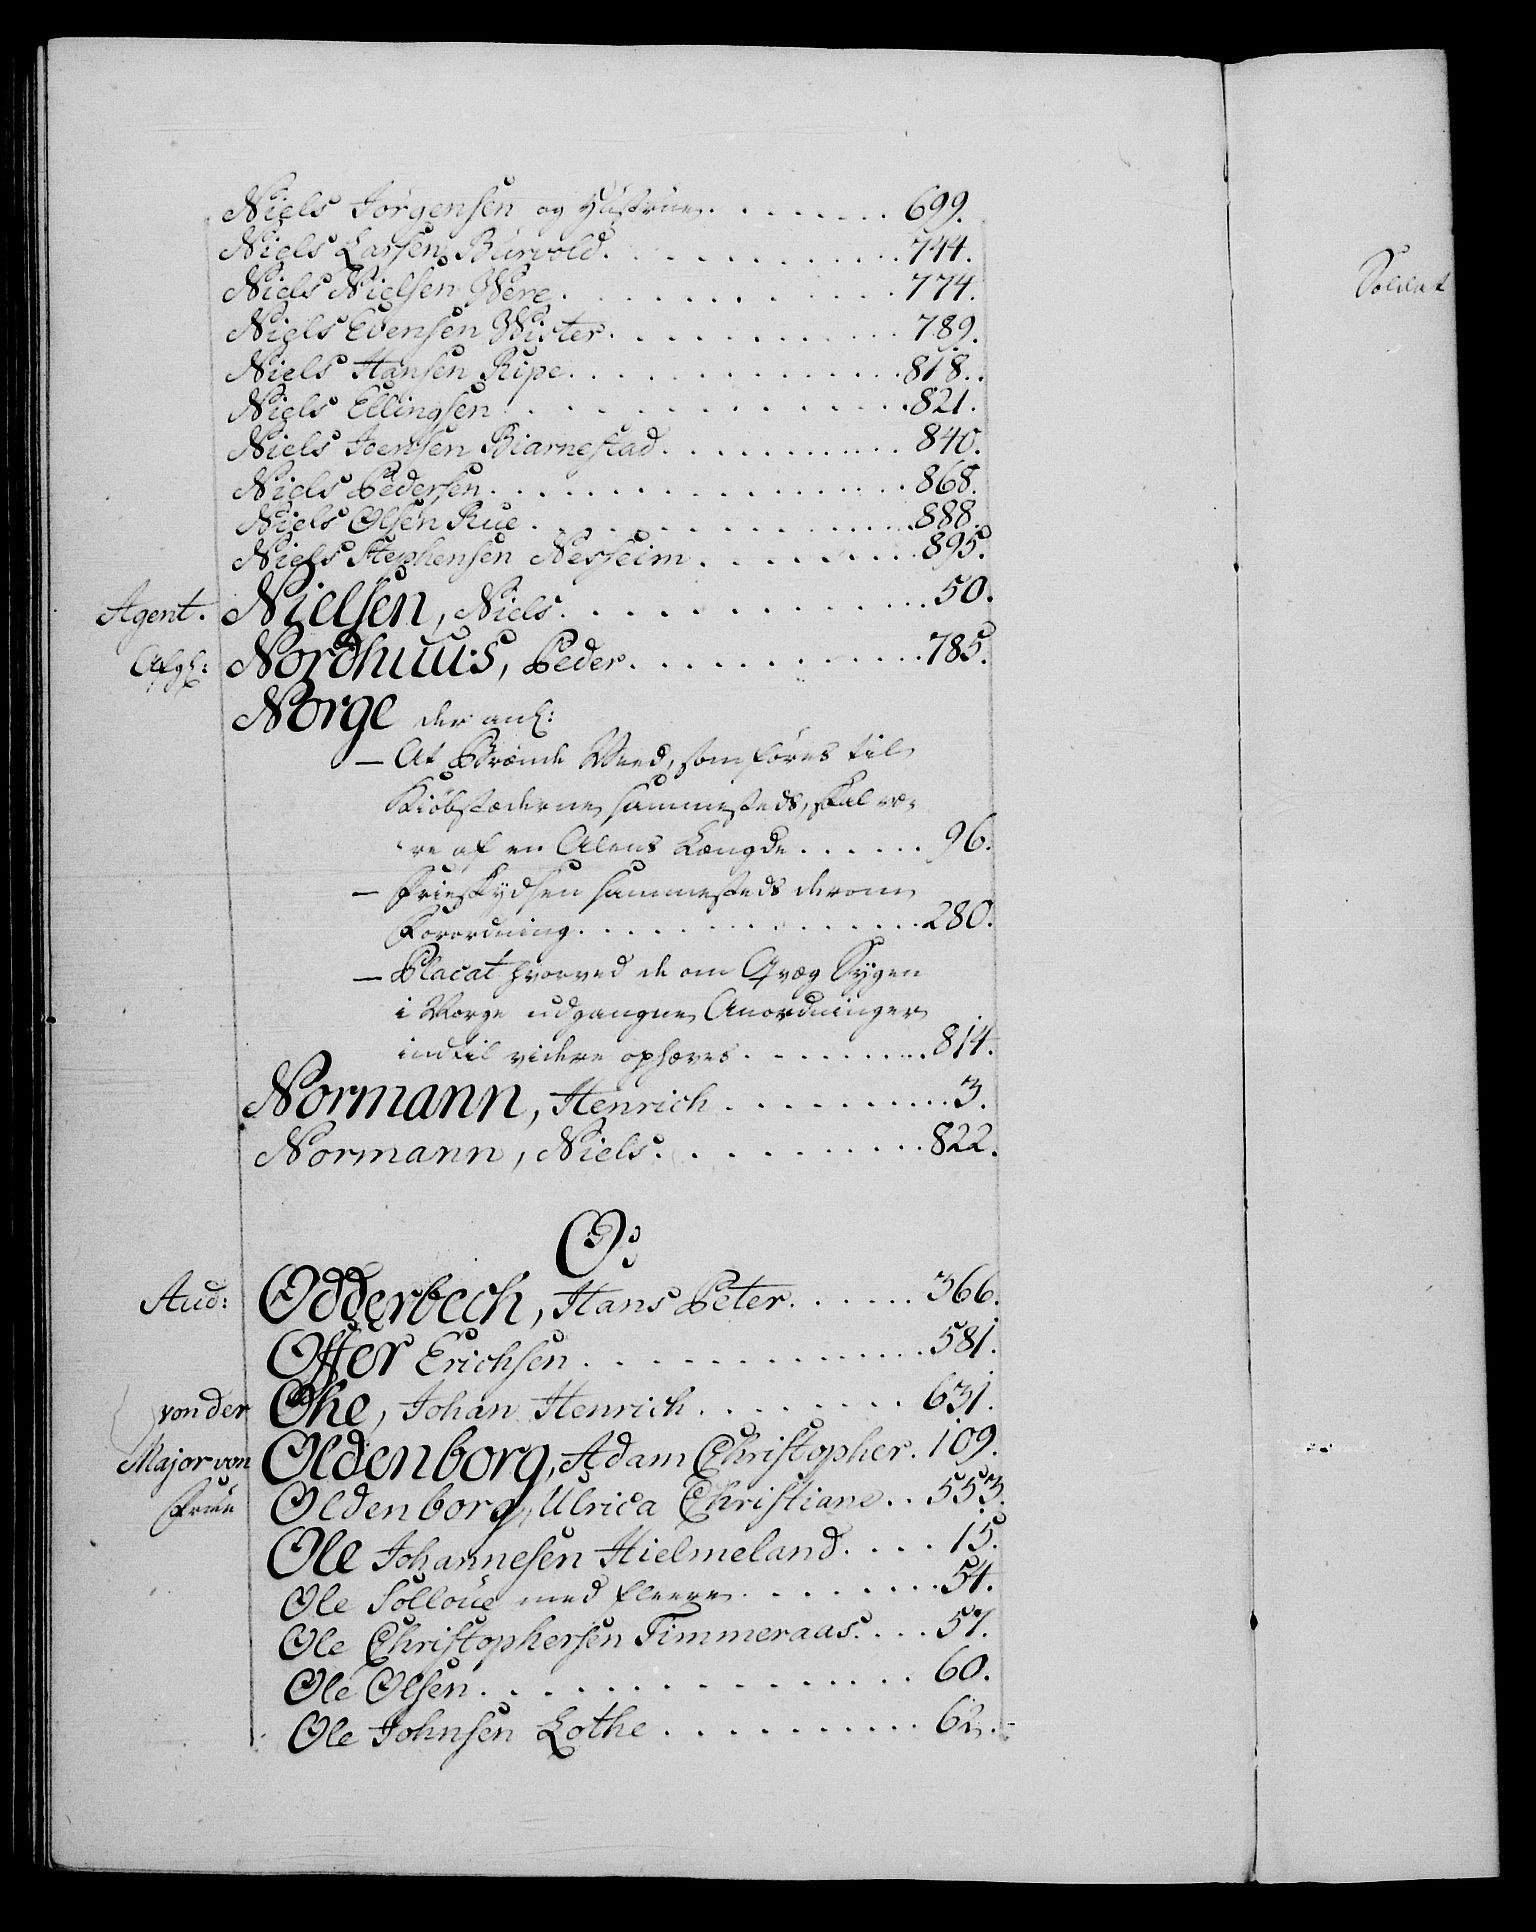 Niels Jörgensen og Hustrue. . . . . . . . 699.
Niels Larsen Burvold. . . . . . . . . . . 744.
Niels Nielsen Were. . . . . . . . . . . . 774.
Niels Evensen Wister. . . . . . . . . . . 789.
Niels Hansen Ripe. . . . . . . . . . . . 818.
Niels Ellingsen . . . . . . . . . . . . . 821.
Niels Joensen Biarnestad. . . . . . . . . 840.
Niels Pedersen. . . . . . . . . . . . . . 868.
Niels Olsen Rue . . . . . . . . . . . . . 888.
Niels Stephensen Nesheim . . . . . . . . 895.
Agent. Nielsen, Niels. . . . . . . . . . . 50.
Nordhuus, Peder. . . . . . . . . . . 785.
Norge der anl:
— At Brænde Veed, som föres til
Kiöbstæderne sammesteds, skal væ-
re af en Alens Længde . . . . . . 96.
— Frieskydsen sammesteds derom
Forordning. . . . . . . . . . . . 280.
— Placat hvorved de om Qvæg Sygen
i Norge udgangne Anordninger
indtil videre ophæves . . . . . . . 814.
Normann, Henrich . . . . . . . . . . 3.
Normann, Niels. . . . . . . . . . . 822.
O:
Aud: Odderbech, Hans Peter. . . . . . 366.
Offer Erichsen . . . . . . . . . . . 581.
von der Ohe, Johan Henrich . . . . . . . 631.
Major von Oldenborg, Adam Christopher. 109.
Frue Oldenborg, Ulrica Christiane . . 553.
Ole Johannesen Hielmeland. . . . 15.
Ole Solloue med fleere . . . . . . . 54.
Ole Christophersen Timmeraas. . . . 57.
Ole Olsen. . . . . . . . . . . . . 60.
Ole Johnsen Lothe . . . . . . . . . 62.
Soldat